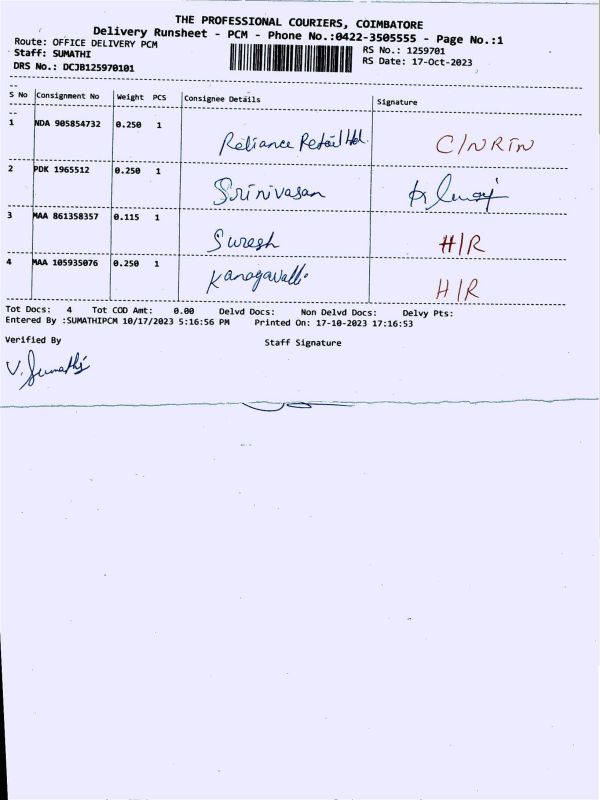 THE PROFESSIONAL COURIERS, COIMBATORE
Delivery Runsheet - PCM - Phone No.:0422-3505555 - Page No.:1
Route: OFFICE DELIVERY PCM
Staff: SUMATHI
DRS No.: DCJB125970101
RS No.: 1259701
RS Date: 17-Oct-2023
S No Consignment No Weight PCS Consignee Details Signature
1 NDA 905854732 0.250 1 Reliance Retail ltd. C/NRIN
2 PDK 1965512 0.250 1 Srinivasan
3 MAA 861358357 0.115 1 Suresh H/R
4 MAA 105935076 0.250 1 Kanagavalli H/R
Tot Docs: 4 Tot COD Amt: 0.00 Delvd Docs: Non Delvd Docs: Delvy Pts:
Entered By :SUMATHIPCM 10/17/2023 5:16:56 PM Printed On: 17-10-2023 17:16:53
Verified By Staff Signature
V. Sumathi